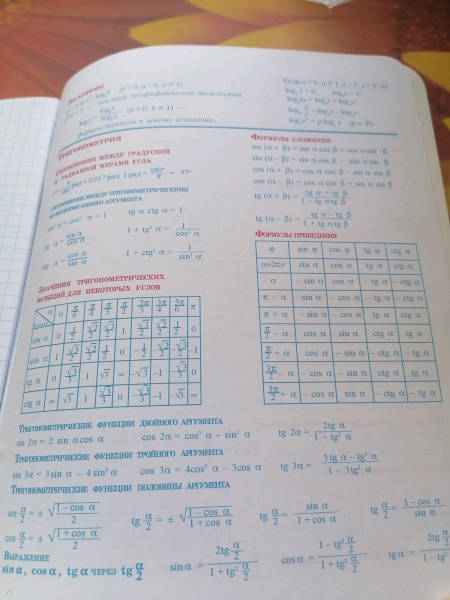 Логарифмы
(b > 0, a > 0, a ≠ 1)
основное логарифмическое тождество
(b > 0, b ≠ 1)
формула перехода к новому основанию.
Если a > 0, a ≠ 1, x > 0, y > 0, то
logₐ 1 = 0, logₐ a = 1;
logₐ xy = logₐ x + logₐ y;
logₐ x/y = logₐ x − logₐ y;
logₐ xᵖ = p logₐ x (p ∈ R).
Тригонометрия
Соотношение между градусной
и радианной мерами угла
рад ≈ 0,017 рад; 1 рад = 180°/π ≈ 57°
Соотношение между тригонометрическими
функциями одного аргумента
sin² α + cos² α = 1 tg α ctg α = 1
tg α = sin α/cos α 1 + tg² α = 1/cos² α
ctg α = cos α/sin α 1 + ctg² α = 1/sin² α
Значения тригонометрических
функций для некоторых углов
α 0 π/6 π/4 π/3 π/2 2π/3 3π/4 5π/6 π
sin α 0 1/2 √2/2 √3/2 1 √3/2 √2/2 1/2 0
cos α 1 √3/2 √2/2 1/2 0 −1/2 −√2/2 −√3/2 −1
tg α 0 √3/3 1 √3 ∞ −√3 −1 −√3/3 0
ctg α ∞ √3 1 √3/3 0 −√3/3 −1 −√3 ∞
Формулы сложения
sin (α + β) = sin α cos β + cos α sin β
sin (α − β) = sin α cos β − cos α sin β
cos (α + β) = cos α cos β − sin α sin β
cos (α − β) = cos α cos β + sin α sin β
tg (α + β) = tg α + tg β/1 − tg α tg β
tg (α − β) = tg α − tg β/1 + tg α tg β
Формулы приведения
φ sin φ cos φ tg φ ctg φ
α+2πn sin α cos α tg α ctg α
− α − sin α cos α − tg α − ctg α
π − α sin α − cos α − tg α − ctg α
π + α − sin α − cos α tg α ctg α
π/2 − α cos α sin α ctg α tg α
π/2 + α cos α − sin α − ctg α − tg α
3π/2 − α − cos α − sin α ctg α tg α
3π/2 + α − cos α sin α − ctg α − tg α
Тригонометрические функции двойного аргумента
sin 2α = 2 sin α cos α cos 2α = cos² α − sin² α tg 2α = 2tg α/1 − tg² α
Тригонометрические функции тройного аргумента
sin 3α = 3 sin α − 4 sin³ α cos 3α = 4cos³ α − 3cos α tg 3α = 3 tg α − tg³ α/1 − 3tg² α
Тригонометрические функции половины аргумента
sin α/2 = ± √(1 − cos α/2) tg α/2 = ± √(1 − cos α/1 + cos α) tg α/2 = sin α/1 + cos α tg α/2 = 1 − cos α/sin α
cos α/2 = ± √(1 + cos α/2)
Выражение
sin α, cos α, tg α через tg α/2 sin α = 2tg α/2/1 + tg² α/2 cos α = 1 − tg² α/2/1 + tg² α/2 tg α = 2tg α/2/1 − tg²